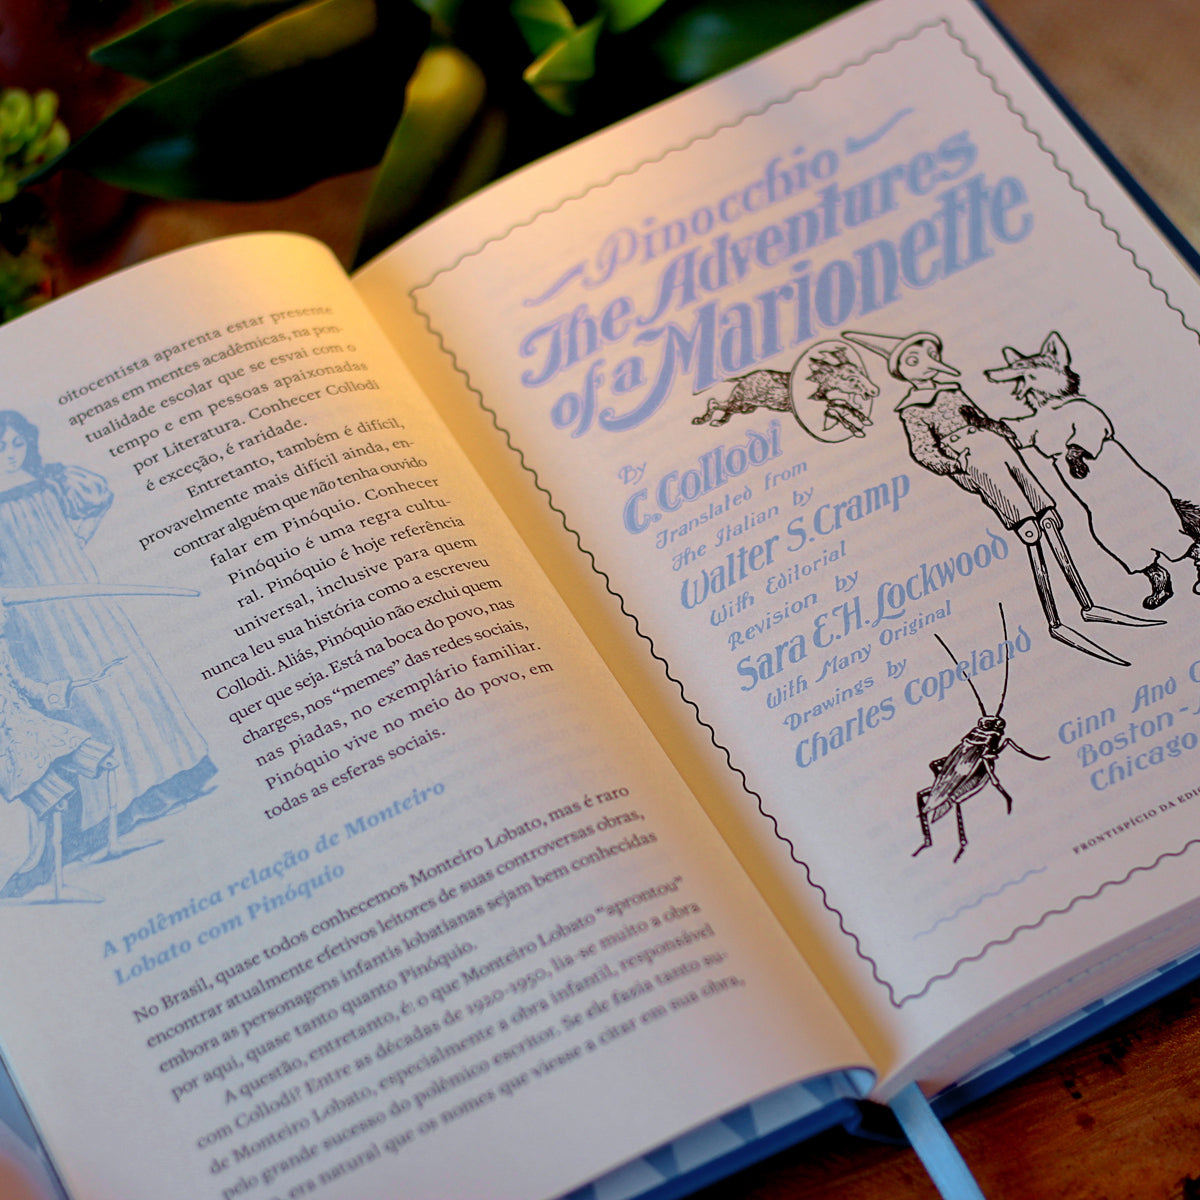 oitocentista aparenta estar presente
apenas em mentes acadêmicas, na pon-
tualidade escolar que se esvai com o
tempo e em pessoas apaixonadas
por Literatura. Conhecer Collodi
é exceção, é raridade.
Entretanto, também é difícil,
provavelmente mais difícil ainda, en-
contrar alguém que não tenha ouvido
falar em Pinóquio. Conhecer
Pinóquio é uma regra cultu-
ral. Pinóquio é hoje referência
universal, inclusive para quem
nunca leu sua história como a escreveu
Collodi. Aliás, Pinóquio não exclui quem
quer que seja. Está na boca do povo, nas
charges, nos “memes” das redes sociais,
nas piadas, no exemplário familiar.
Pinóquio vive no meio do povo, em
todas as esferas sociais.
A polêmica relação de Monteiro
Lobato com Pinóquio
No Brasil, quase todos conhecemos Monteiro Lobato, mas é raro
encontrar atualmente efetivos leitores de suas controversas obras,
embora as personagens infantis lobatianas sejam bem conhecidas
por aqui, quase tanto quanto Pinóquio.
A questão, entretanto, é: o que Monteiro Lobato “aprontou”
com Collodi? Entre as décadas de 1920-1950, lia-se muito a obra
de Monteiro Lobato, especialmente a obra infantil, responsável
pelo grande sucesso do polêmico escritor. Se ele fazia tanto su-
era natural que os nomes que viesse a citar em sua obra,
Pinocchio
The Adventures
of a Marionette
By
C. Collodi
Translated from
The Italian by
Walter S. Cramp
With Editorial
Revision by
Sara E.H. Lockwood
With Many Original
Drawings by
Charles Copeland
Ginn And
Boston -
Chicago
FRONTISPÍCIO DA